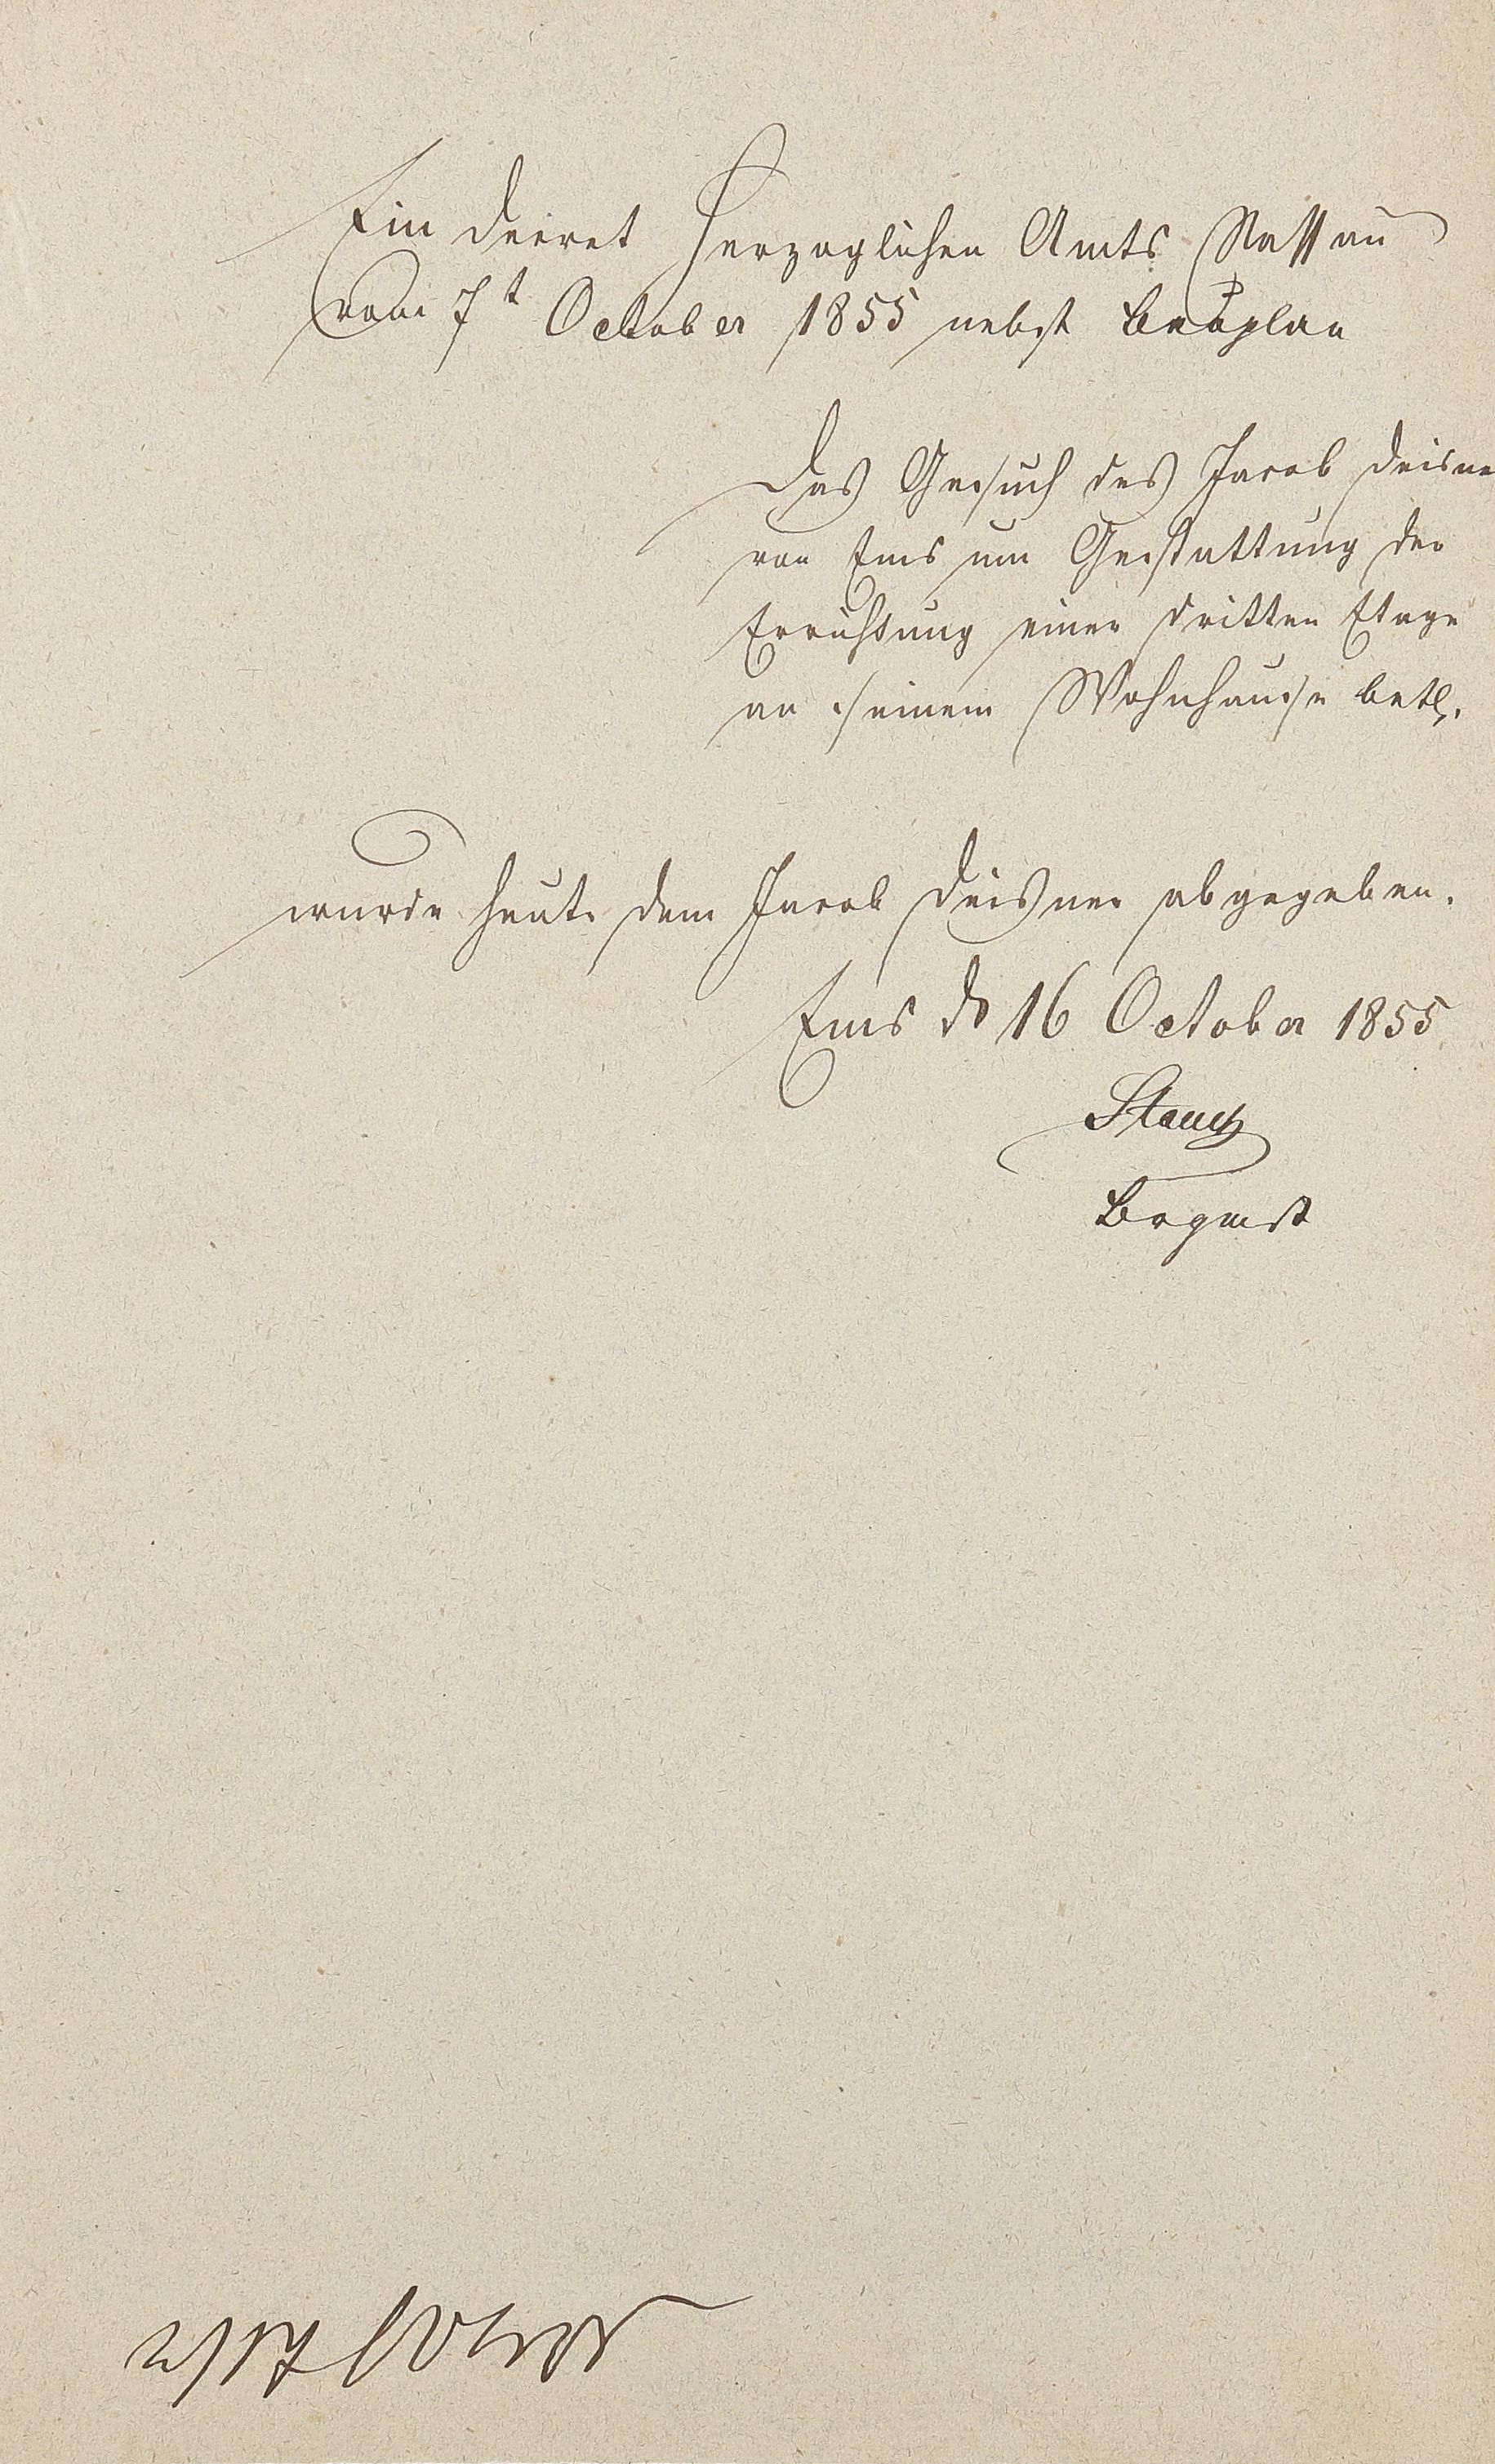 Ein Decret Herzoglichen Amts Nassau
vom 7t October 1855 nebst Bauplan
Das Gesuch des Jacob Deisne
von Ems um Gestattung der
Errichtung einer dritten Etage
an seinem Wohnhause betr.
wurde heute dem Jacob Deisner abgegeben.
Ems d 16 October 1855
Brgmst